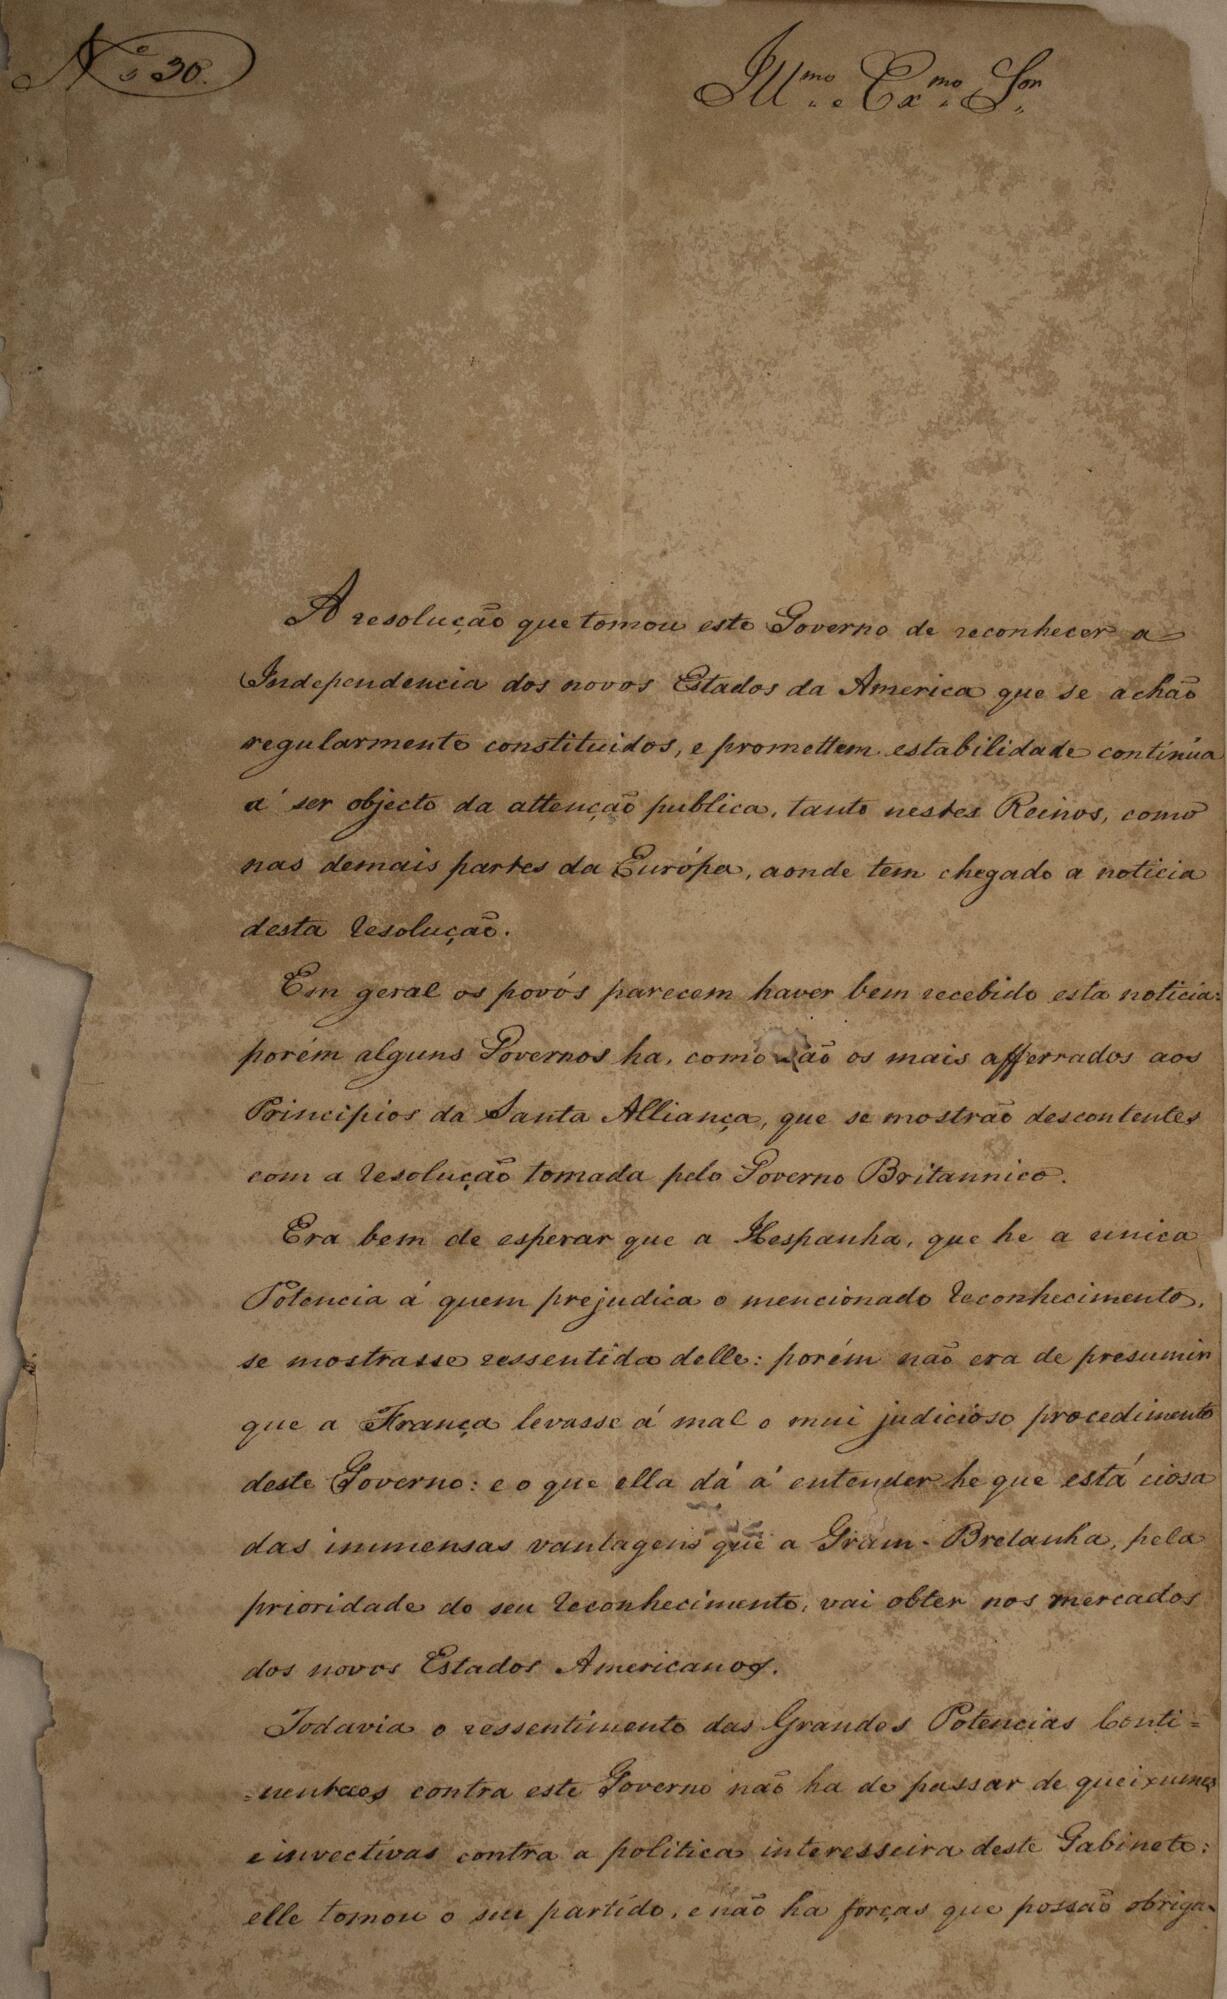 N.º 30.
Ill.mo e Ex.mo S.or
A resolução que tomou este Governo de reconhecer a
Independencia dos novos Estados da America que se achão
regularmente constituidos, e promettem estabilidade continúa
á ser objecto da attenção publica, tanto nestes Reinos, como
nas demais partes da Európa, aonde tem chegado a noticia
desta resolução.
Em geral os povós parecem haver bem recebido esta noticia:
porém alguns Governos ha, como são os mais afferrados aos
Principios da Santa Alliança, que se mostrão descontentes
com a resolução tomada pelo Governo Britannico.
Era bem de esperar que a Hespanha, que he a unica
Potencia á quem prejudica o mencionado reconhecimento,
se mostrasse ressentida delle: porém não era de presumir
que a França levasse á mal o mui judicioso procedimento
deste Governo: e o que ella dá á entender he que está ciosa
das immensas vantagens que a Gram-Bretanha, pela
prioridade do seu reconhecimento, vai obter nos mercados
dos novos Estados Americanos.
Todavia o ressentimento das Grandes Potencias Conti=
=nentaes contra este Governo não ha de passar de queixumes
e invectivas contra a politica interesseira deste Gabinete:
elle tomou o seu partido, e não ha forças que possão obriga-